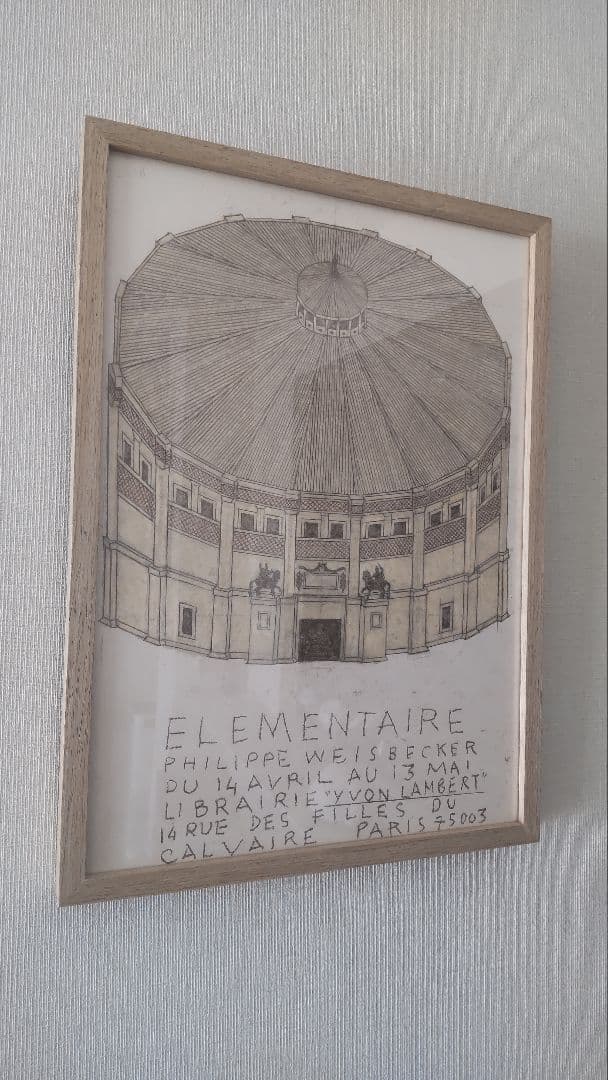 ELEMENTAIRE
PHILIPPE WEISBECKER
DU 14 AVRIL AU 13 MAI
LIBRAIRIE "YVON LAMBERT"
14 RUE DES FILLES DU
CALVAIRE PARIS 75003